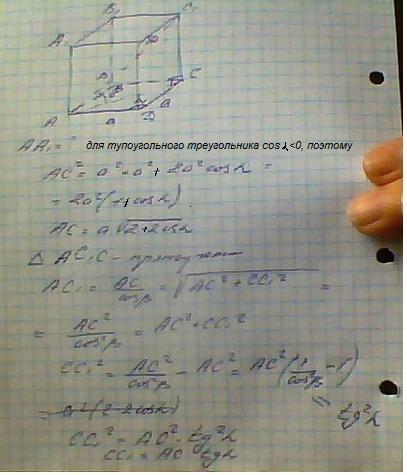 B₁ C₁
A₁ D₁
B C
A a D a
AA₁ =
для тупоугольного треугольника cos α<0, поэтому
AC² = a² + a² + 2a² cosα =
= 2a²(1+cosα)
AC = a√2+2cosα
Δ AC₁C - прямоугольн
AC₁ = AC/cosβ = √AC² + CC₁² =
= AC²/cos²β = AC² + CC₁²
CC₁² = AC²/cos²β - AC² = AC²(1/cos²β - 1)
= a²(2-2cosα) = tg²α
CC₁² = AC² · tg²α
CC₁ = AC tgα